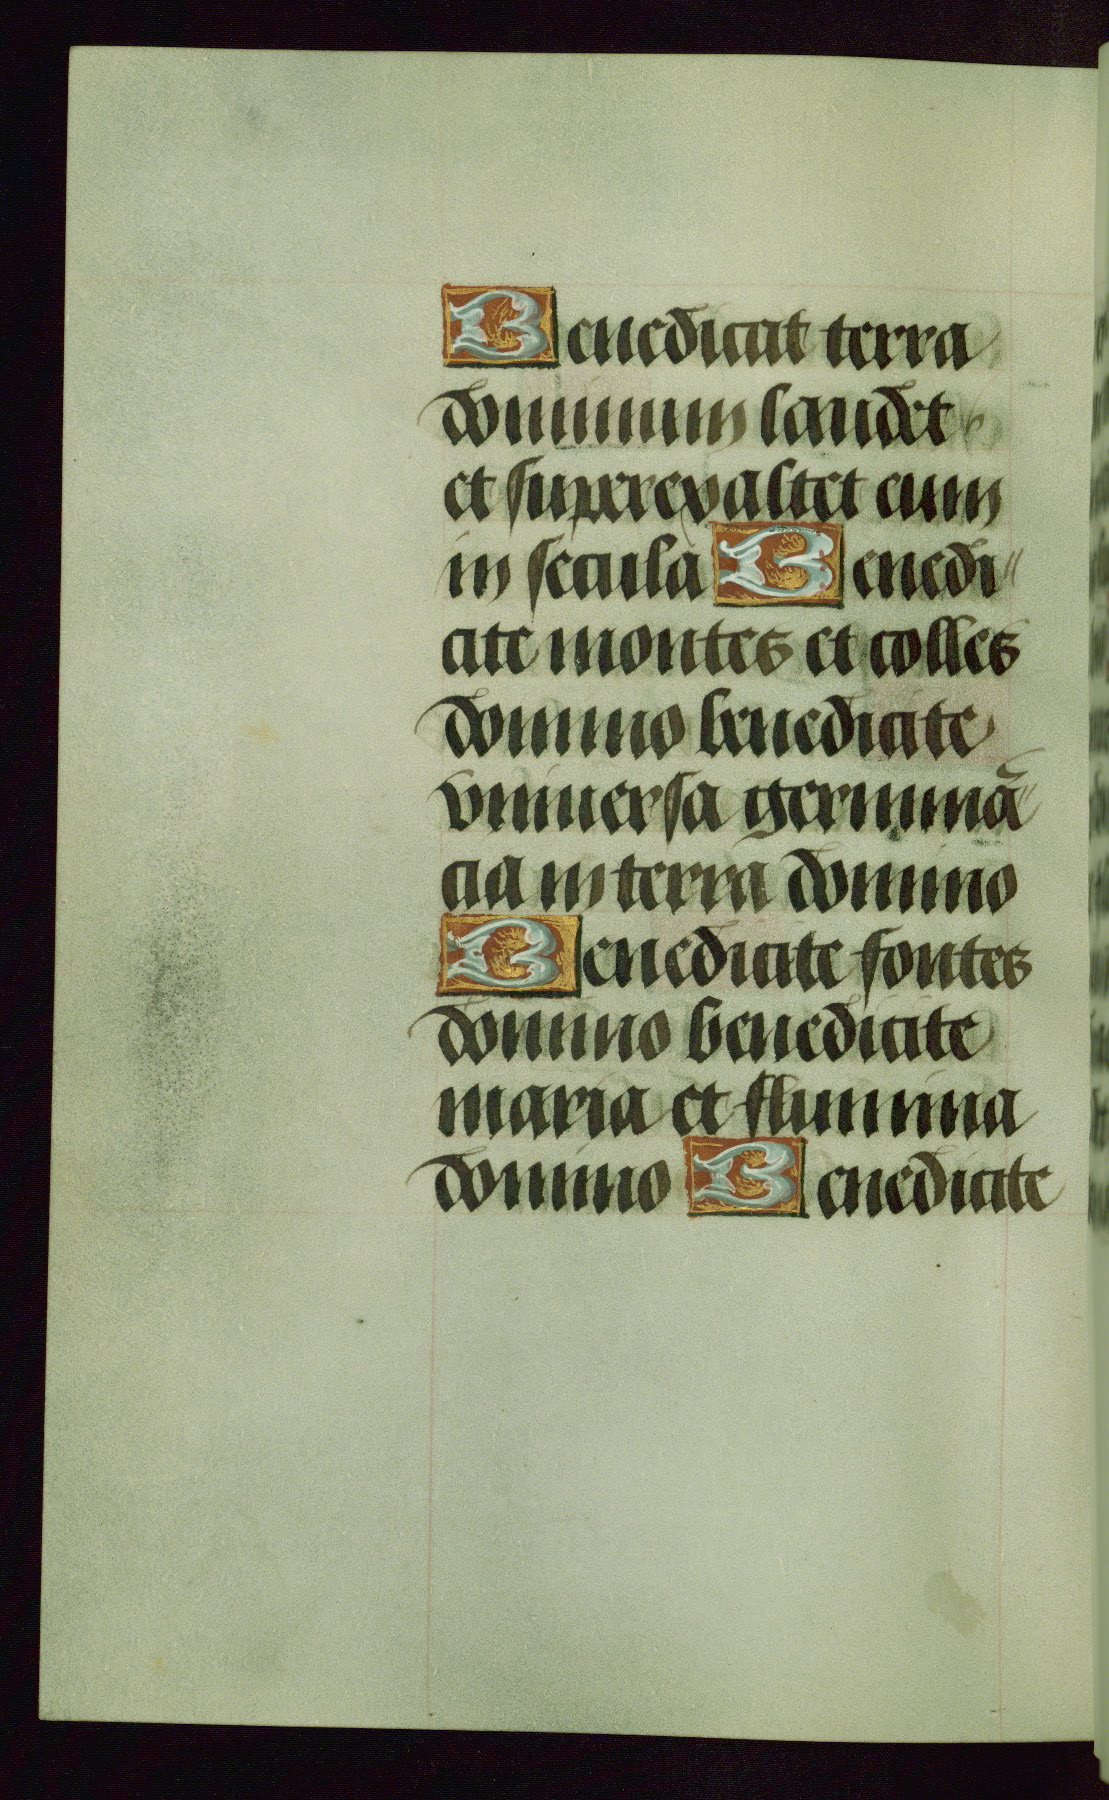 Benedicat terra
dominum laudet
et superexaltet eum
in secula Benedi
cite montes et colles
domino benedicite
vniuersa germinā
cia in terra domino
Benedicite fontes
domino benedicite
maria et flumina
domino Benedicite